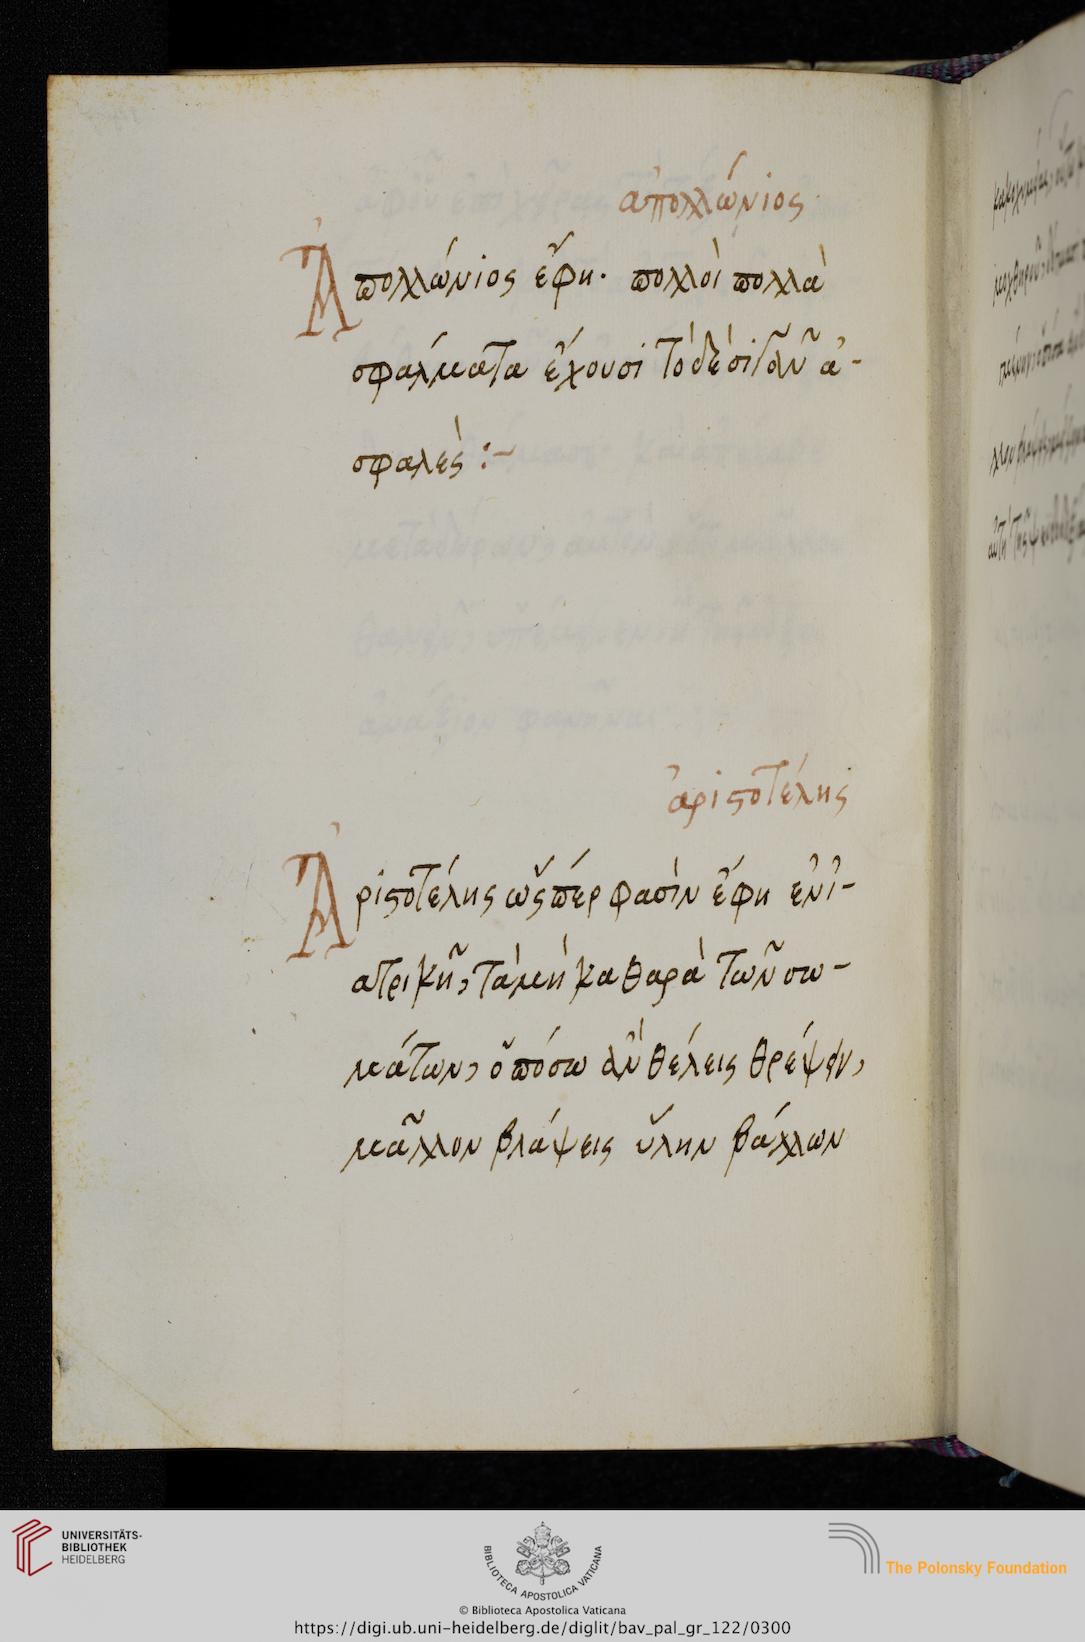 ἀπολλώνιος
Ἀπολλώνιος ἔφη· πολλοὶ πολλὰ
σφάλματα ἔχουσι τὸ δὲ σιγᾶν ἀ-
σφαλές :-
ἀριστοτέλης
Ἀριστοτέλης ὥσπερ φασὶν ἔφη ἐν ἰ-
ατρικῆ, τὰ μὴ καθαρὰ τῶν σω-
μάτων, ὁπόσω ἂν θέλεις θρέψειν,
μᾶλλον βλάψεις ὕλην βάλλων
UNIVERSITÄTS-
BIBLIOTHEK
HEIDELBERG
BIBLIOTECA APOSTOLICA VATICANA
The Polonsky Foundation
© Biblioteca Apostolica Vaticana
https://digi.ub.uni-heidelberg.de/diglit/bav_pal_gr_122/0300